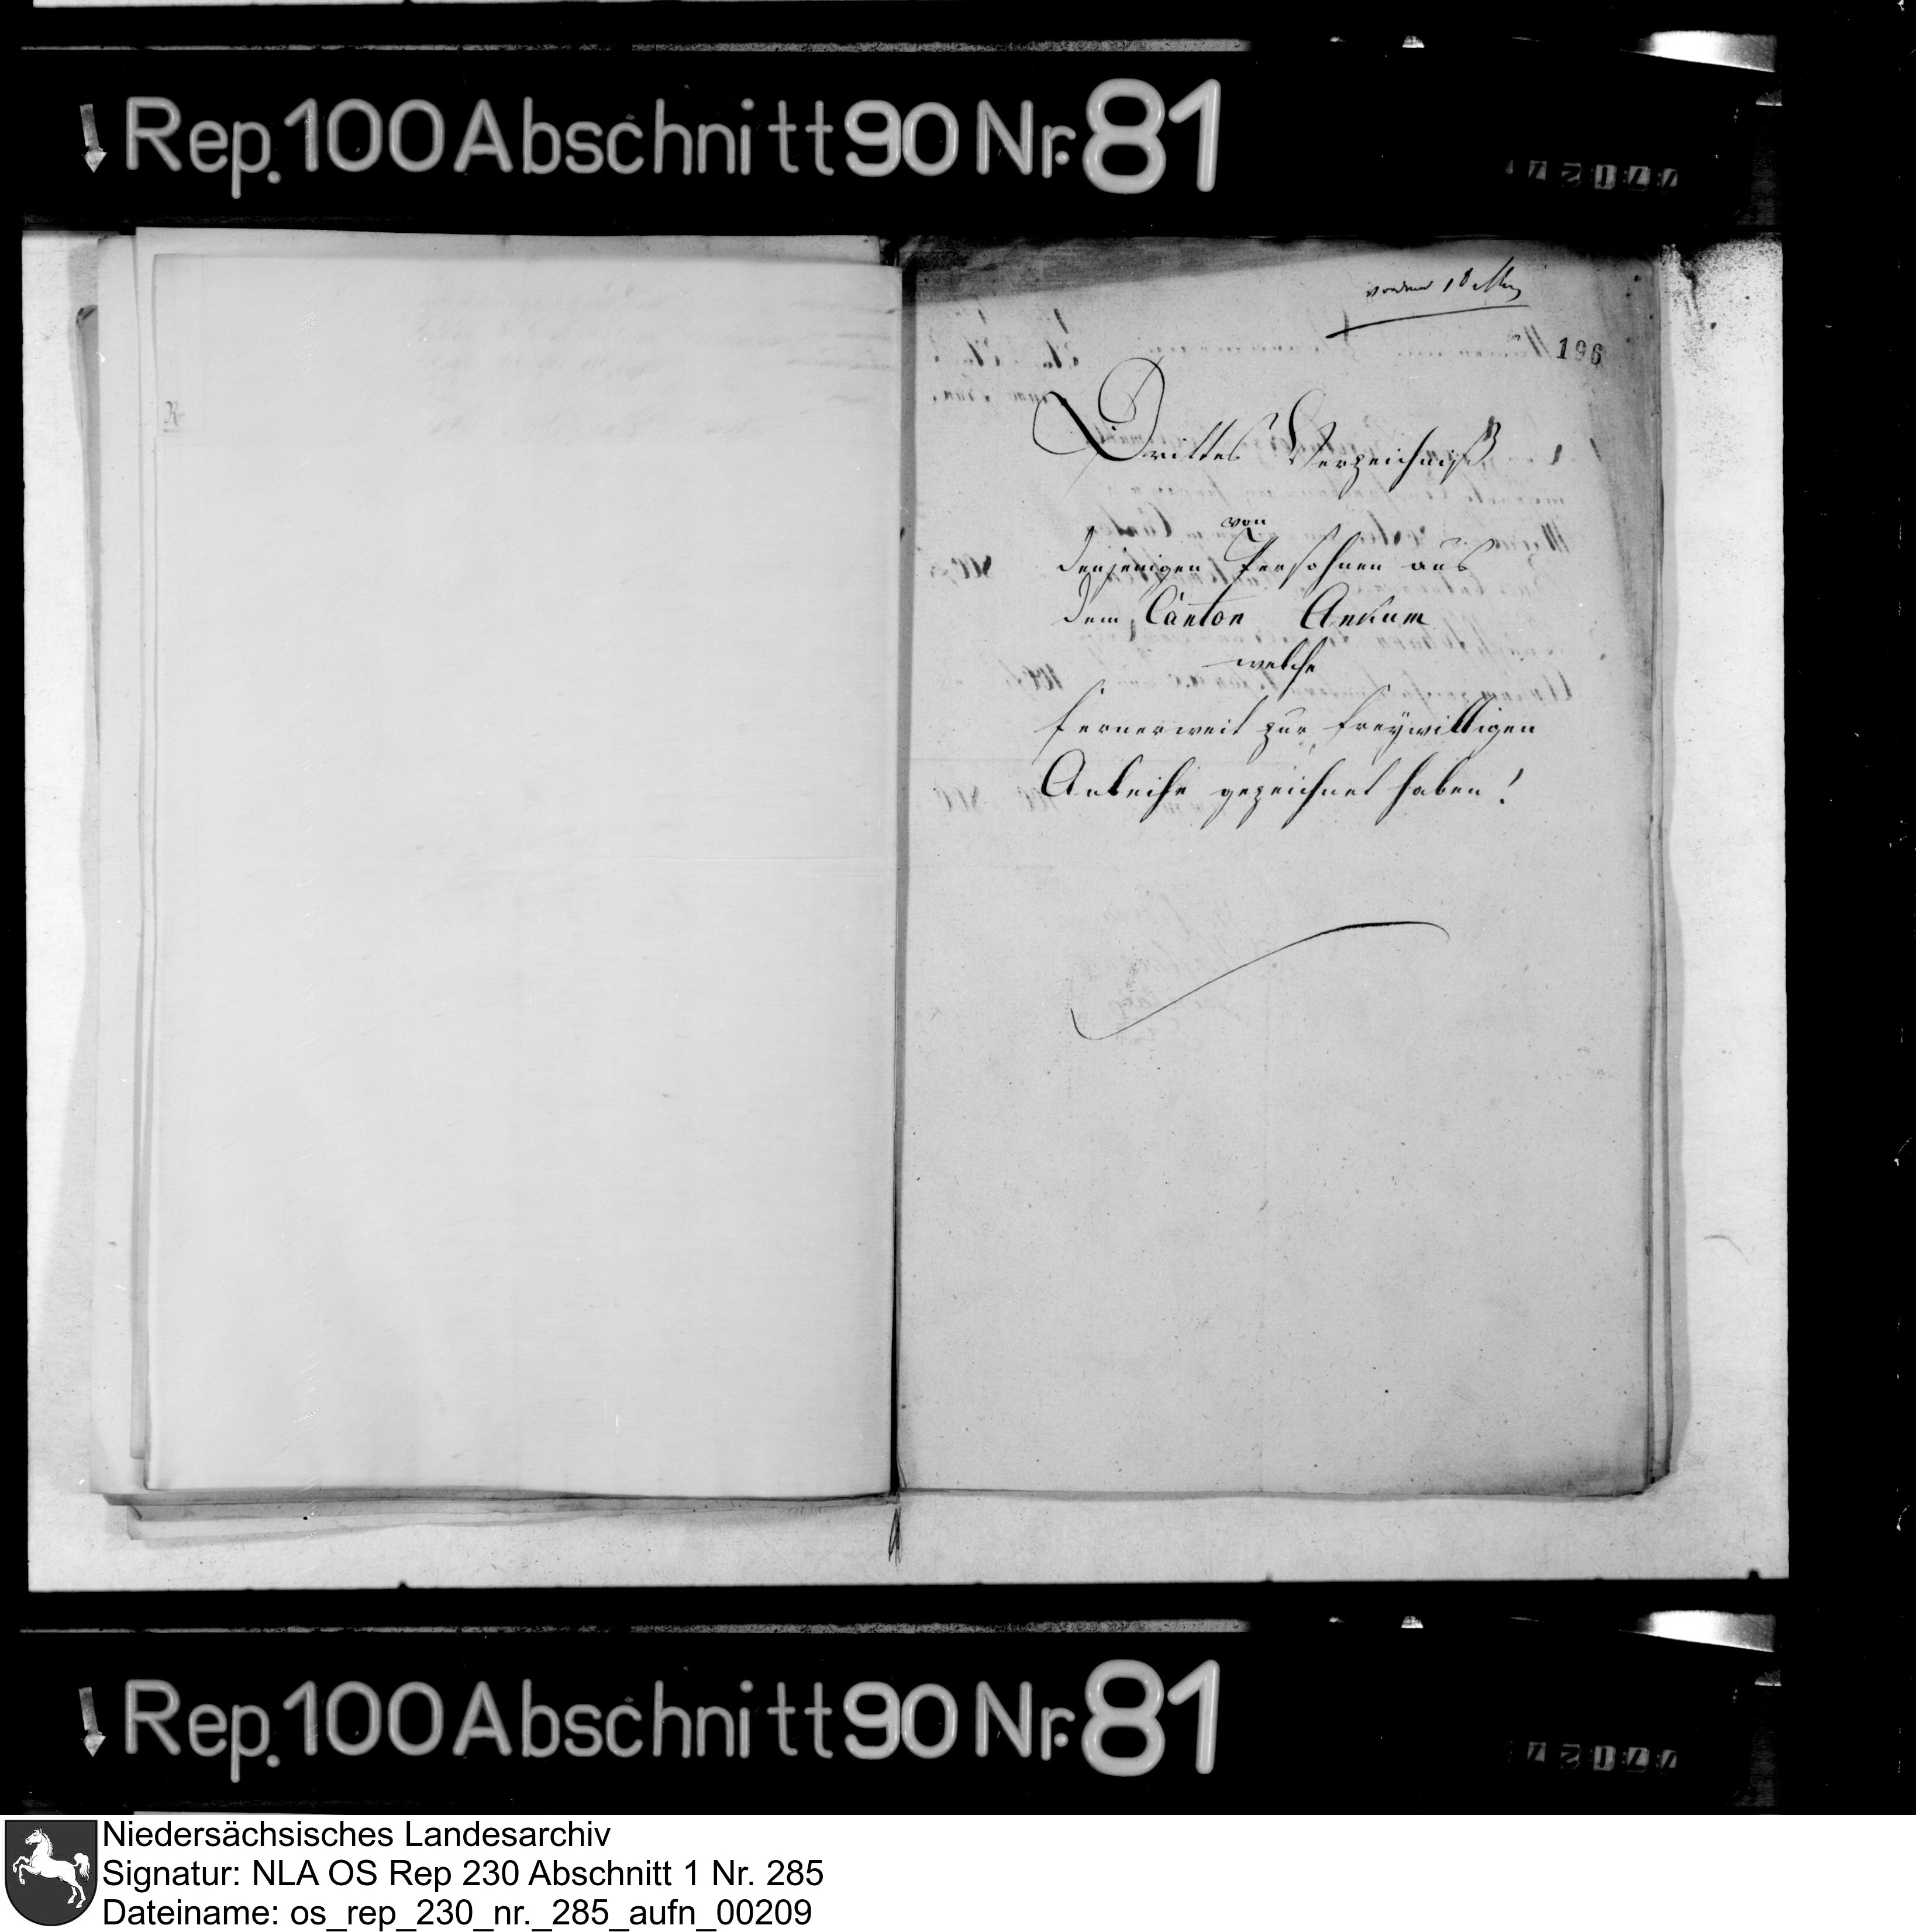 Rep. 100 Abschnitt 90 Nr. 81
196
Drittes Verzeichniß
von
denjenigen Persohnen aus
dem Canton Ankum
welche
fernerweit zur freÿwilligen
Anleihe gezeichnet haben!
Rep. 100 Abschnitt 90 Nr. 81
Niedersächsisches Landesarchiv
Signatur: NLA OS Rep 230 Abschnitt 1 Nr. 285
Dateiname: os_rep_230_nr._285_aufn_00209